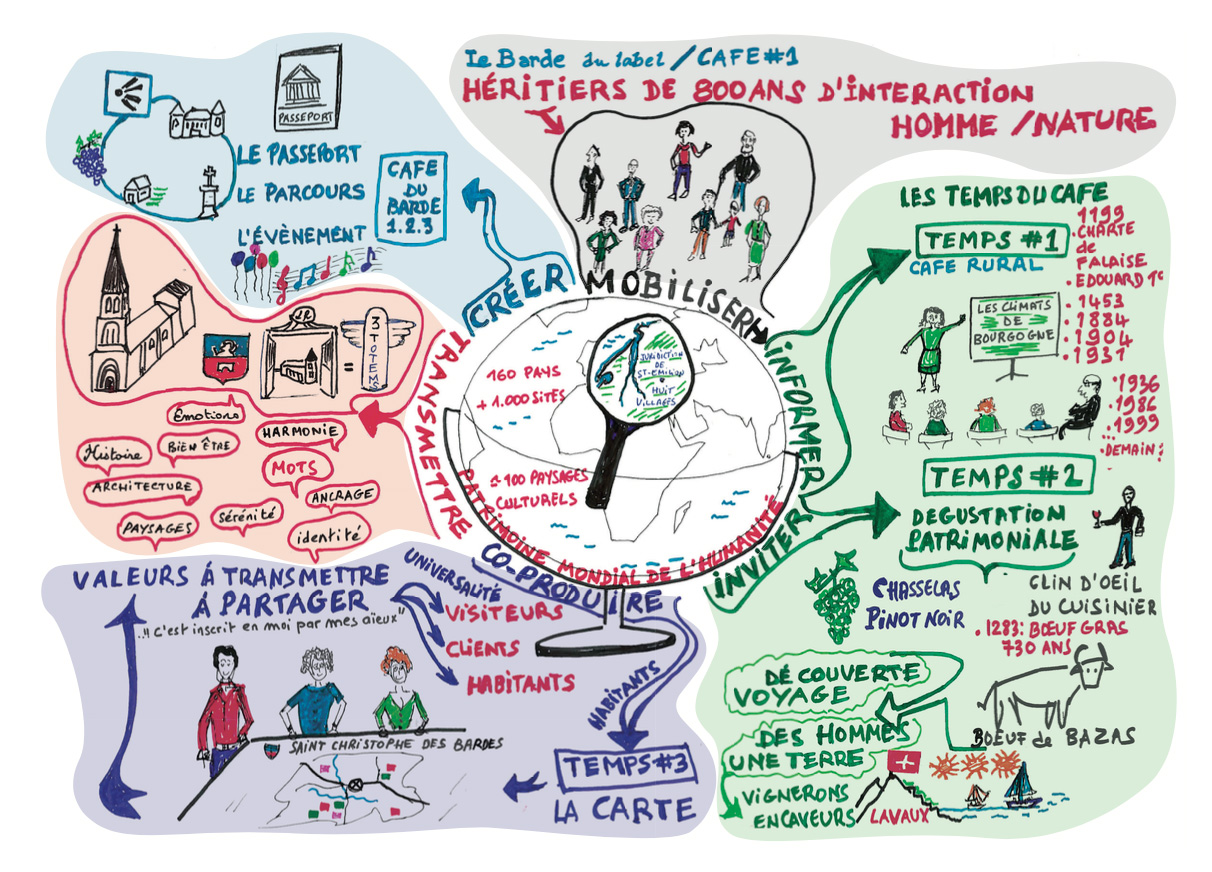 Le Barde du label / CAFE #1
HÉRITIERS DE 800 ANS D'INTERACTION
HOMME / NATURE
PASSEPORT
LE PASSEPORT
LE PARCOURS
L'ÉVÈNEMENT
CAFE
DU
BARDE
1.2.3
CRÉER
MOBILISER
INFORMER
INVITER
CO-PRODUIRE
TRANSMETTRE
160 PAYS
+ 1.000 SITÉS
± 100 PAYSAGES
CULTURELS
PATRIMOINE MONDIAL DE L'HUMANITÉ
JURIDICTION
DE
ST-EMILION
HUIT
VILLAGES
3 TOTEMS
=
Emotions
HARMONIE
BIEN ÊTRE
Histoire
MOTS
ARCHITECTURE
ANCRAGE
PAYSAGES
Sérénité
identité
LES TEMPS DU CAFE
TEMPS #1
CAFE RURAL
1199
CHARTE
de
FALAISE
• EDOUARD 1er
• 1453
• 1884
• 1904
• 1931
• 1936
• 1986
• 1999
...
• DEMAIN :
LES CLIMATS
DE
BOURGOGNE
TEMPS #2
DEGUSTATION
PATRIMONIALE
CHASSELAS
PINOT NOIR
CLIN D'OEIL
DU CUISINIER
• 1283: BŒUF GRAS
730 ANS
BŒUF de BAZAS
DÉCOUVERTE
VOYAGE
DES HOMMES
UNE TERRE
VIGNERONS
ENCAVEURS
LAVAUX
VALEURS Á TRANSMETTRE
Á PARTAGER
..!! C'est inscrit en moi par mes aïeux"
UNIVERSALITÉ
VISITEURS
CLIENTS
HABITANTS
HABITANTS
SAINT CHRISTOPHE DES BARDES
TEMPS #3
LA CARTE